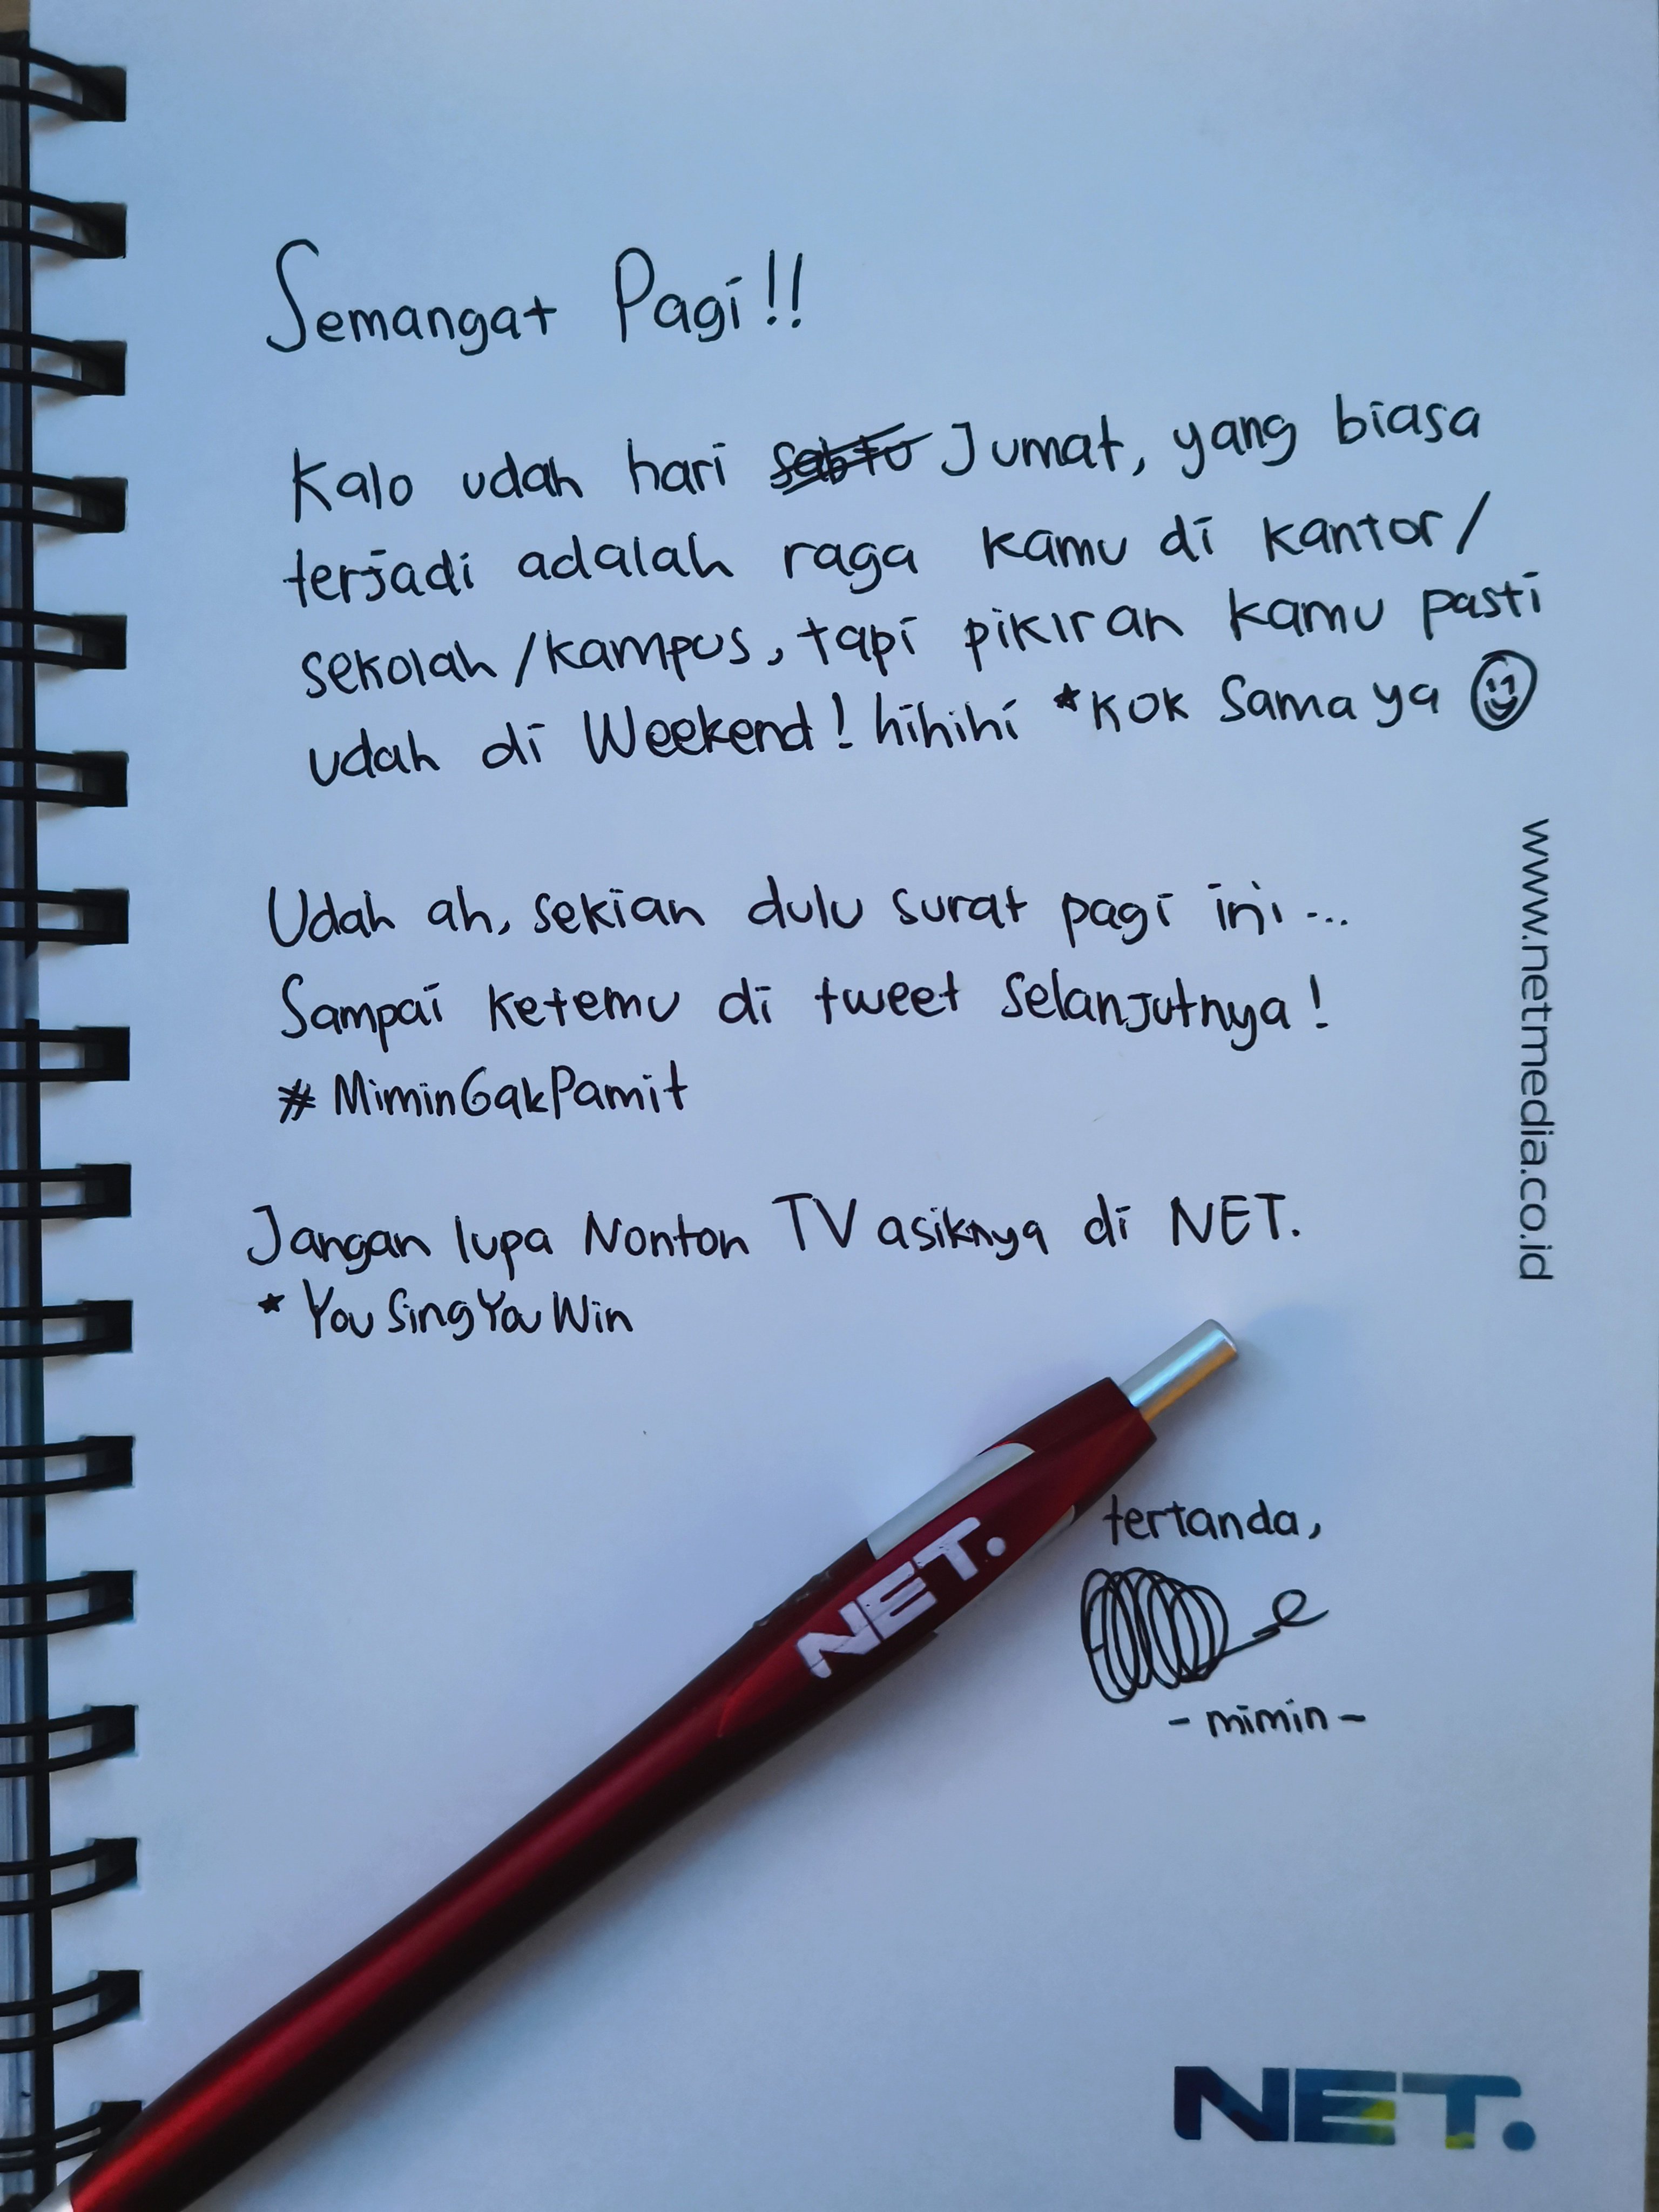 Semangat Pagi!!
Kalo udah hari sabtu Jumat, yang biasa
terjadi adalah raga kamu di kantor/
sekolah/kampus, tapi pikiran kamu pasti
udah di Weekend! hihihi *kok sama ya
Udah ah, sekian dulu surat pagi ini...
Sampai ketemu di tweet selanjutnya!
#MiminGakPamit
Jangan lupa Nonton TV asiknya di NET.
*YouSingYouWin
tertanda,
- mimin -
NET.
www.netmedia.co.id
NET.